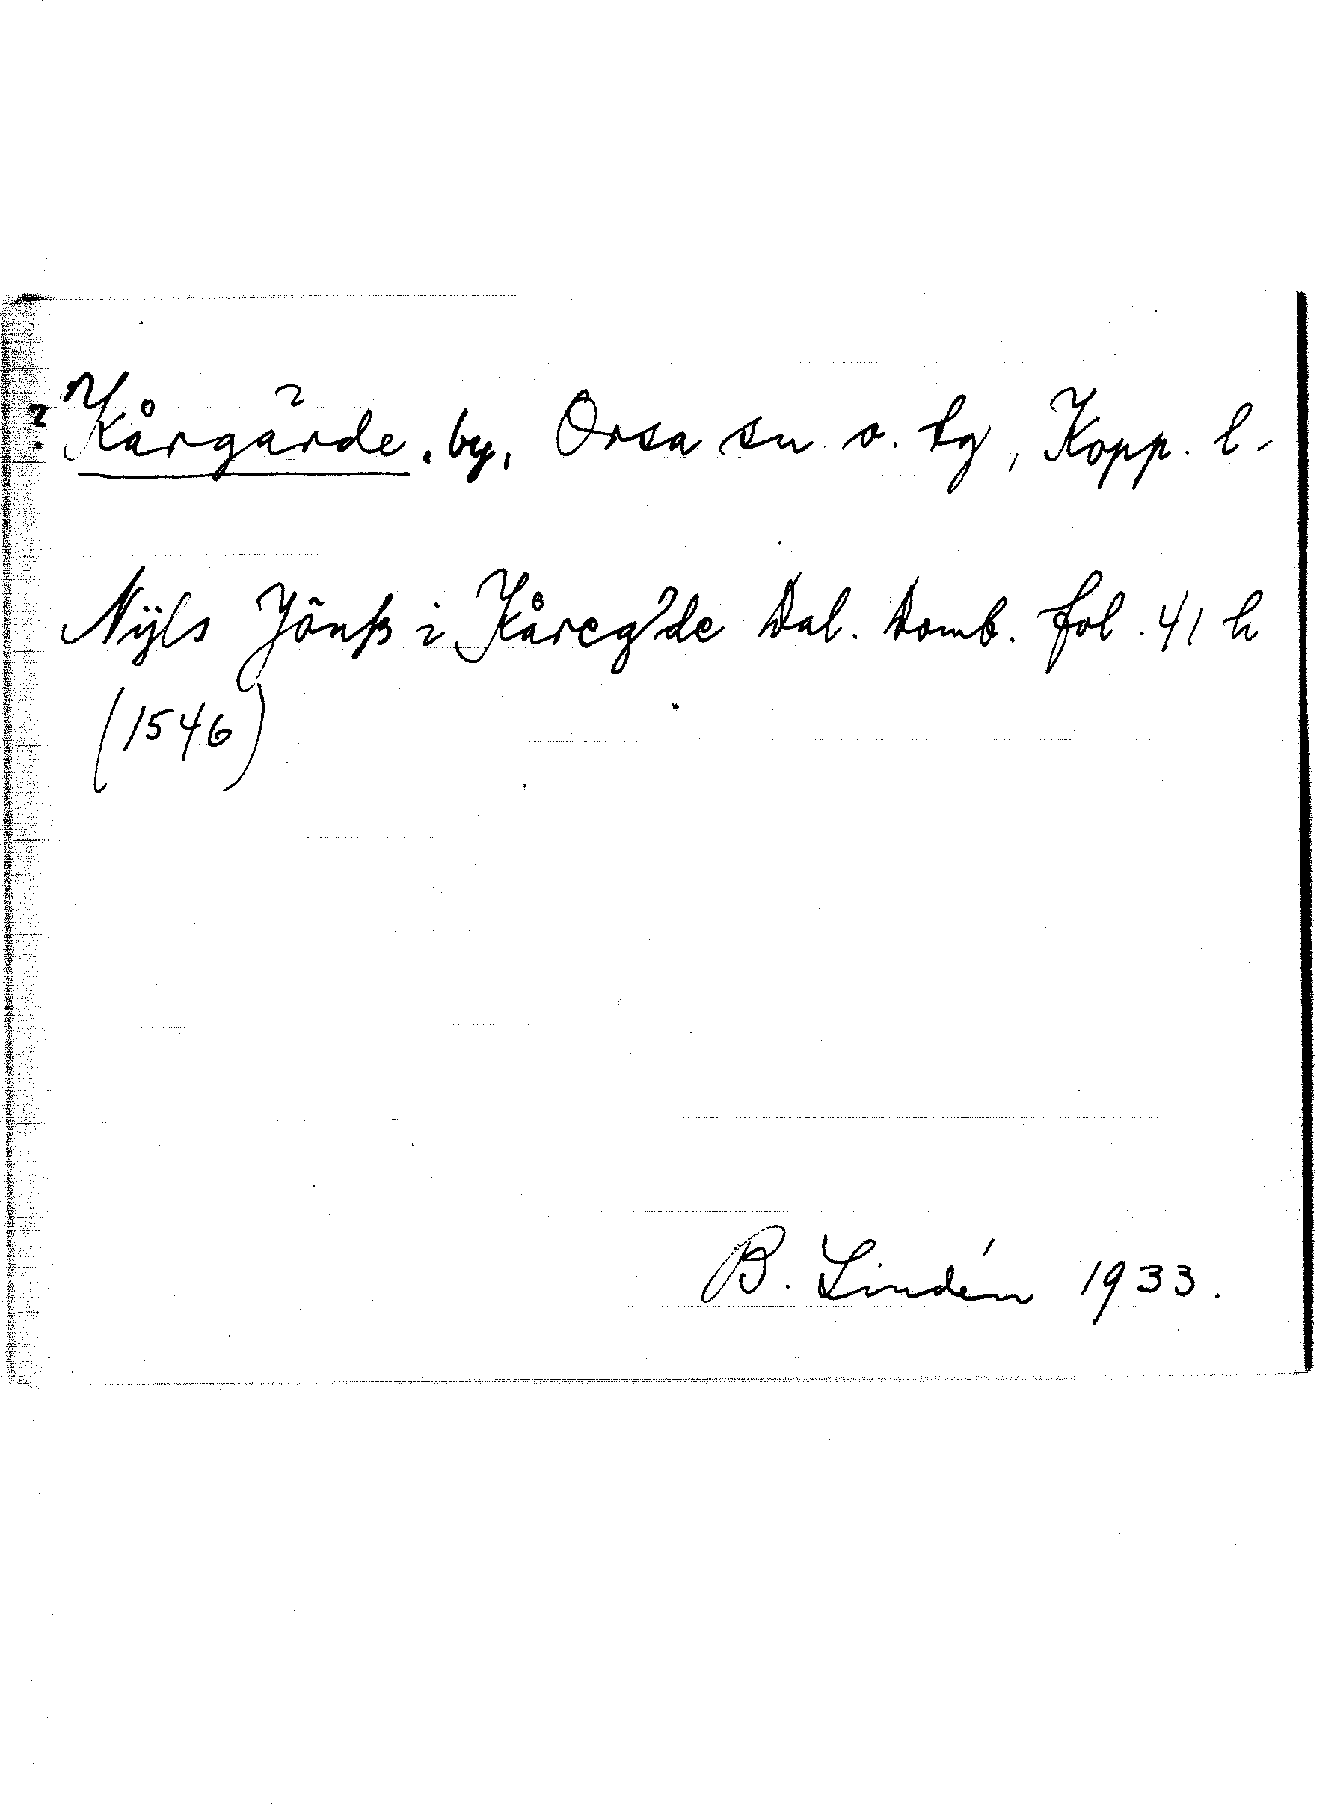 ? Kårgärde, by, Orsa sn o. tg, Kopp. l.
Nÿls Jönß i Kåreg'de Dal. Domb. fol. 41 h
(1546)
B. Lindén 1933.